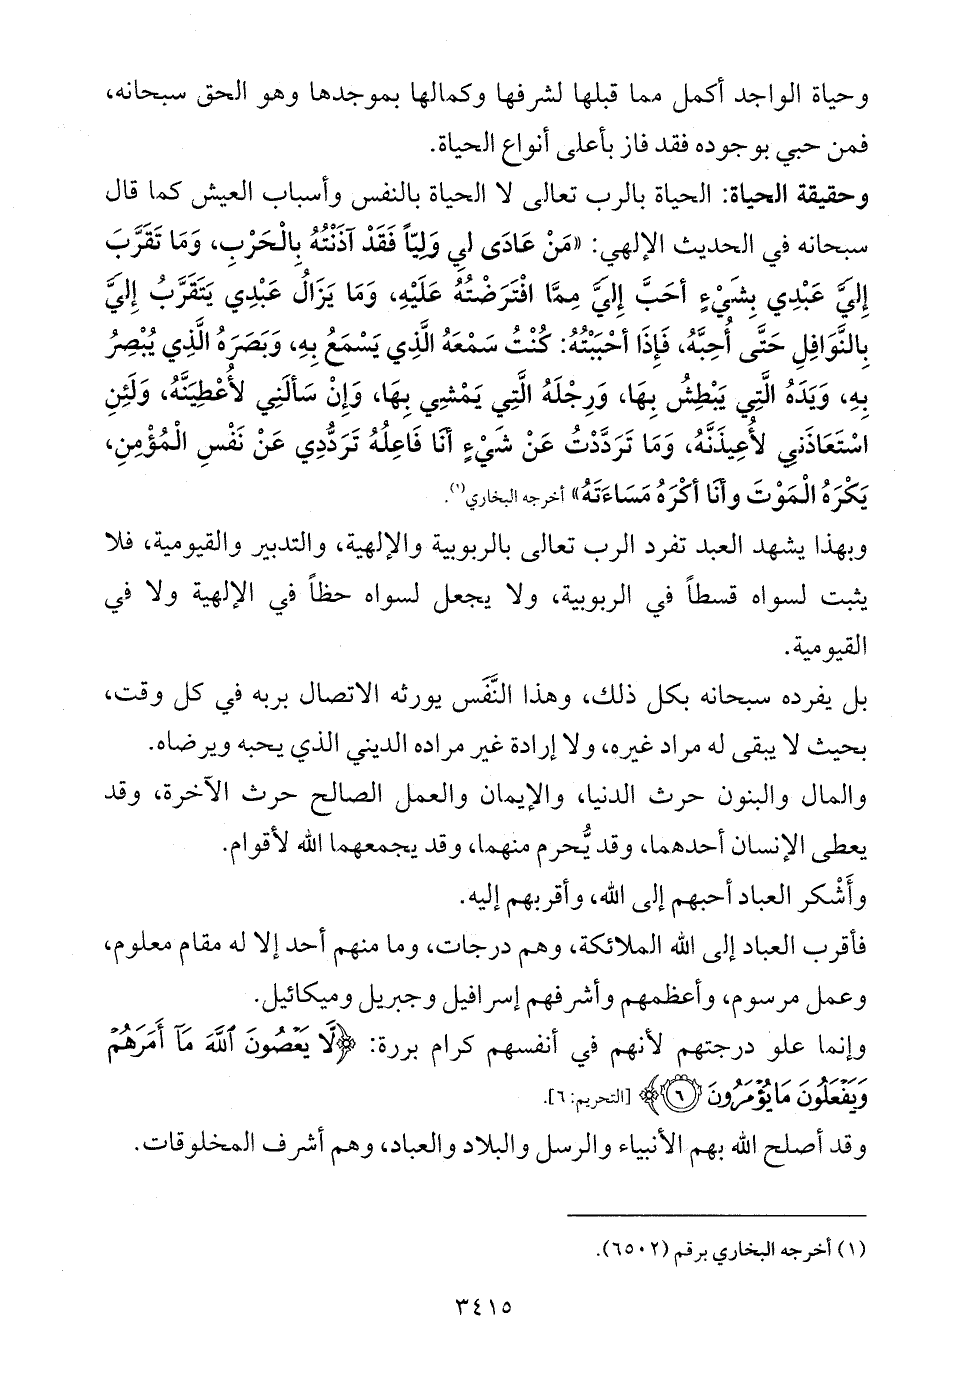 وحياة الواجد أكمل مما قبلها لشرفها وكمالها بموجدها وهو الحق سبحانه،
فمن حبي بوجوده فقد فاز بأعلى أنواع الحياة.
وحقيقة الحياة: الحياة بالرب تعالى لا الحياة بالنفس وأسباب العيش كما قال
سبحانه في الحديث الإلهي: «مَنْ عَادَى لِي وَلِيّاً فَقَدْ آذَنْتُهُ بِالْحَرْبِ، وَمَا تَقَرَّبَ
إِلَيَّ عَبْدِي بِشَيْءٍ أحَبَّ إِلَيَّ مِمَّا افْتَرَضْتُهُ عَلَيْهِ، وَمَا يَزَالُ عَبْدِي يَتَقَرَّبُ إِلَيَّ
بِالنَّوَافِلِ حَتَّى أُحِبَّهُ، فَإِذَا أحْبَبْتُهُ: كُنْتُ سَمْعَهُ الَّذِي يَسْمَعُ بِهِ، وَبَصَرَهُ الَّذِي يُبْصِرُ
بِهِ، وَيَدَهُ الَّتِي يَبْطِشُ بِهَا، وَرِجْلَهُ الَّتِي يَمْشِي بِهَا، وَإِنْ سَألَنِي لأُعْطِيَنَّهُ، وَلَئِنِ
اسْتَعَاذَنِي لأُعِيذَنَّهُ، وَمَا تَرَدَّدْتُ عَنْ شَيْءٍ أنَا فَاعِلُهُ تَرَدُّدِي عَنْ نَفْسِ الْمُؤْمِنِ،
يَكْرَهُ الْمَوْتَ وأنَا أكْرَهُ مَسَاءَتَهُ» أخرجه البخاري(١).
وبهذا يشهد العبد تفرد الرب تعالى بالربوبية والإلهية، والتدبير والقيومية، فلا
يثبت لسواه قسطاً في الربوبية، ولا يجعل لسواه حظاً في الإلهية ولا في
القيومية.
بل يفرده سبحانه بكل ذلك، وهذا النَّفَس يورثه الاتصال بربه في كل وقت،
بحيث لا يبقى له مراد غيره، ولا إرادة غير مراده الديني الذي يحبه ويرضاه.
والمال والبنون حرث الدنيا، والإيمان والعمل الصالح حرث الآخرة، وقد
يعطى الإنسان أحدهما، وقد يُّحرم منهما، وقد يجمعهما الله لأقوام.
وأَشْكر العباد أحبهم إلى الله، وأقربهم إليه.
فأقرب العباد إلى الله الملائكة، وهم درجات، وما منهم أحد إلا له مقام معلوم،
وعمل مرسوم، وأعظمهم وأشرفهم إسرافيل وجبريل وميكائيل.
وإنما علو درجتهم لأنهم في أنفسهم كرام بررة: ﴿لَّا يَعْصُونَ ٱللَّهَ مَآ أَمَرَهُمْ
وَيَفْعَلُونَ مَا يُؤْمَرُونَ ٦﴾ [التحريم: ٦].
وقد أصلح الله بهم الأنبياء والرسل والبلاد والعباد، وهم أشرف المخلوقات.
(١) أخرجه البخاري برقم (٦٥٠٢).
٣٤١٥